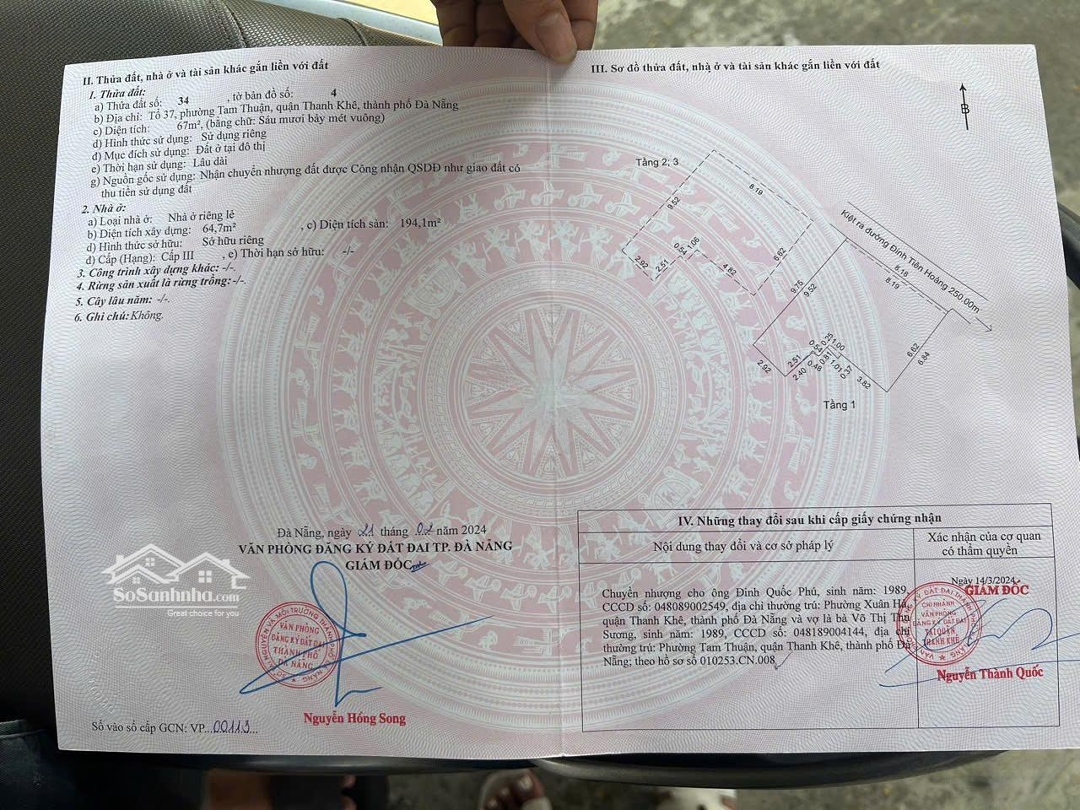 II. Thửa đất, nhà ở và tài sản khác gắn liền với đất
1. Thửa đất:
a) Thửa đất số: 34 , tờ bản đồ số: 4
b) Địa chỉ: Tổ 37, phường Tam Thuận, quận Thanh Khê, thành phố Đà Nẵng
c) Diện tích: 67m², (bằng chữ: Sáu mươi bảy mét vuông)
d) Hình thức sử dụng: Sử dụng riêng
đ) Mục đích sử dụng: Đất ở tại đô thị
e) Thời hạn sử dụng: Lâu dài
g) Nguồn gốc sử dụng: Nhận chuyển nhượng đất được Công nhận QSDĐ như giao đất có
thu tiền sử dụng đất
2. Nhà ở:
a) Loại nhà ở: Nhà ở riêng lẻ
b) Diện tích xây dựng: 64,7m² , c) Diện tích sàn: 194,1m²
d) Hình thức sở hữu: Sở hữu riêng
đ) Cấp (Hạng): Cấp III , e) Thời hạn sở hữu: -/-
3. Công trình xây dựng khác: -/-.
4. Rừng sản xuất là rừng trồng:-/-.
5. Cây lâu năm: -/-.
6. Ghi chú: Không.
III. Sơ đồ thửa đất, nhà ở và tài sản khác gắn liền với đất
B
Tầng 2; 3
8.19
9.52
6.62
1.06
0.54
4.82
2.92
2.51
Kiệt ra đường Đinh Tiên Hoàng 250.00m
8.18
8.19
9.75
9.52
6.62
6.84
0.25
1.00
0.54
2.51
0.81
0.48
1.01
2.40
3.82
2.92
Tầng 1
Đà Nẵng, ngày 21 tháng 02 năm 2024
VĂN PHÒNG ĐĂNG KÝ ĐẤT ĐAI TP. ĐÀ NẴNG
GIÁM ĐỐC
VĂN PHÒNG
ĐĂNG KÝ ĐẤT ĐAI
THÀNH PHỐ
ĐÀ NẴNG
Nguyễn Hồng Song
Số vào sổ cấp GCN: VP...00113...
SoSanhnha.com
Great choice for you
IV. Những thay đổi sau khi cấp giấy chứng nhận
Nội dung thay đổi và cơ sở pháp lý
Xác nhận của cơ quan
có thẩm quyền
Chuyển nhượng cho ông Đinh Quốc Phú, sinh năm: 1989,
CCCD số: 048089002549, địa chỉ thường trú: Phường Xuân Hà,
quận Thanh Khê, thành phố Đà Nẵng và vợ là bà Võ Thị Thu
Sương, sinh năm: 1989, CCCD số: 048189004144, địa chỉ
thường trú: Phường Tam Thuận, quận Thanh Khê, thành phố Đà
Nẵng; theo hồ sơ số 010253.CN.008
Ngày 14/3/2024
GIÁM ĐỐC
CHI NHÁNH
VĂN PHÒNG
ĐĂNG KÝ ĐẤT ĐAI
TẠI QUẬN
THANH KHÊ
Nguyễn Thành Quốc